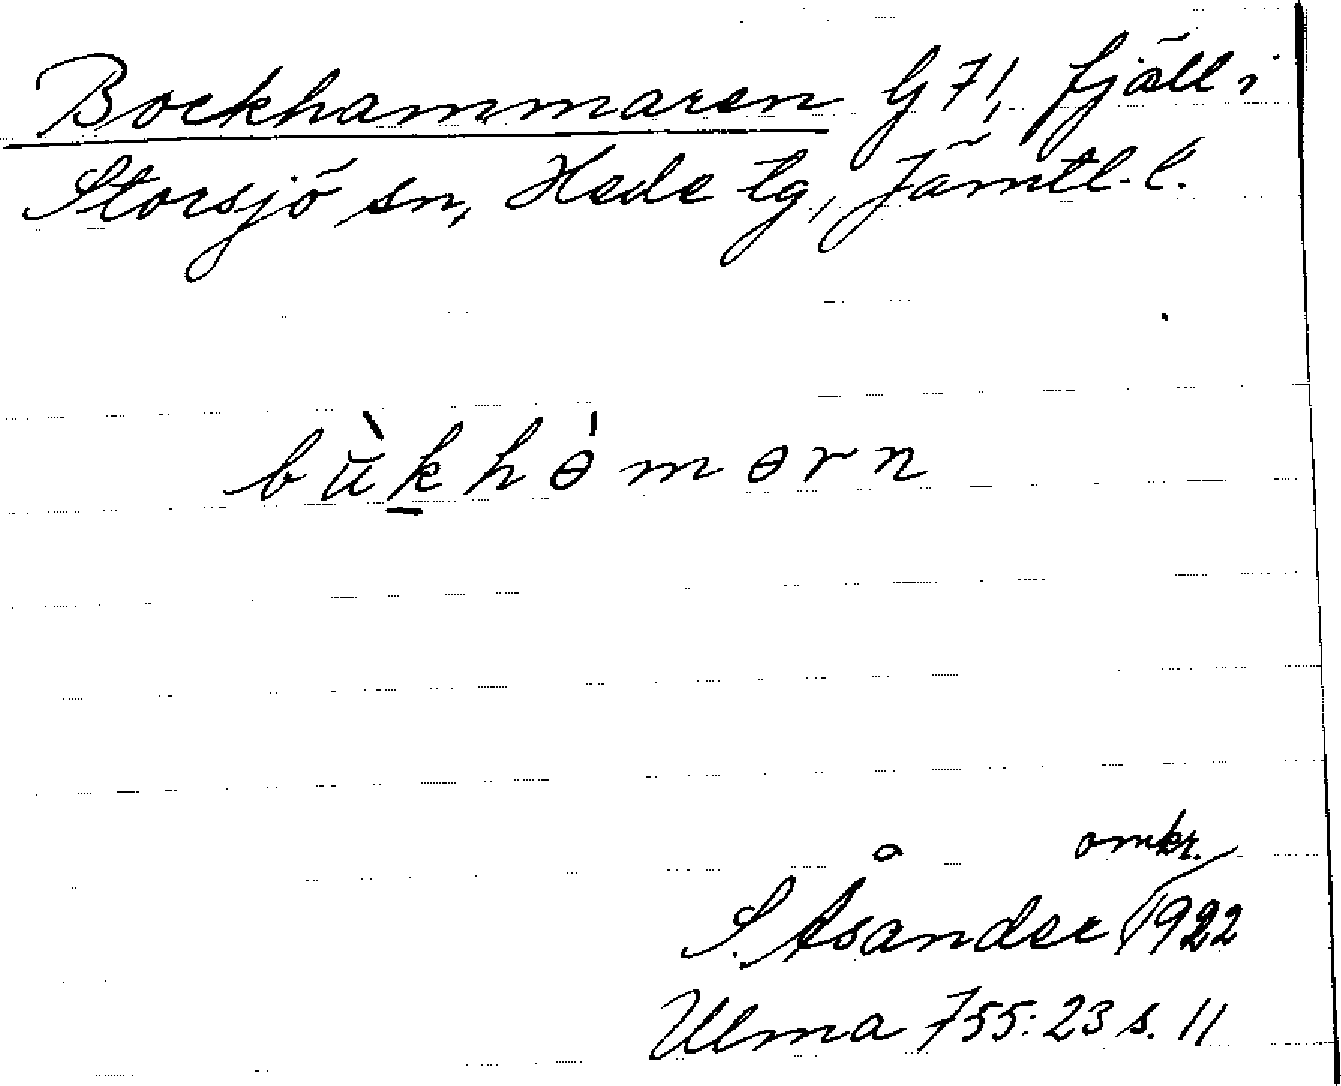 Bockhammaren G 71, fjäll i
Storsjö sn, Hede tg, Jämtl. l.
bùkhə̍mərn
omkr.
S. Åsander 1922
Ulma 755:23 s. 11